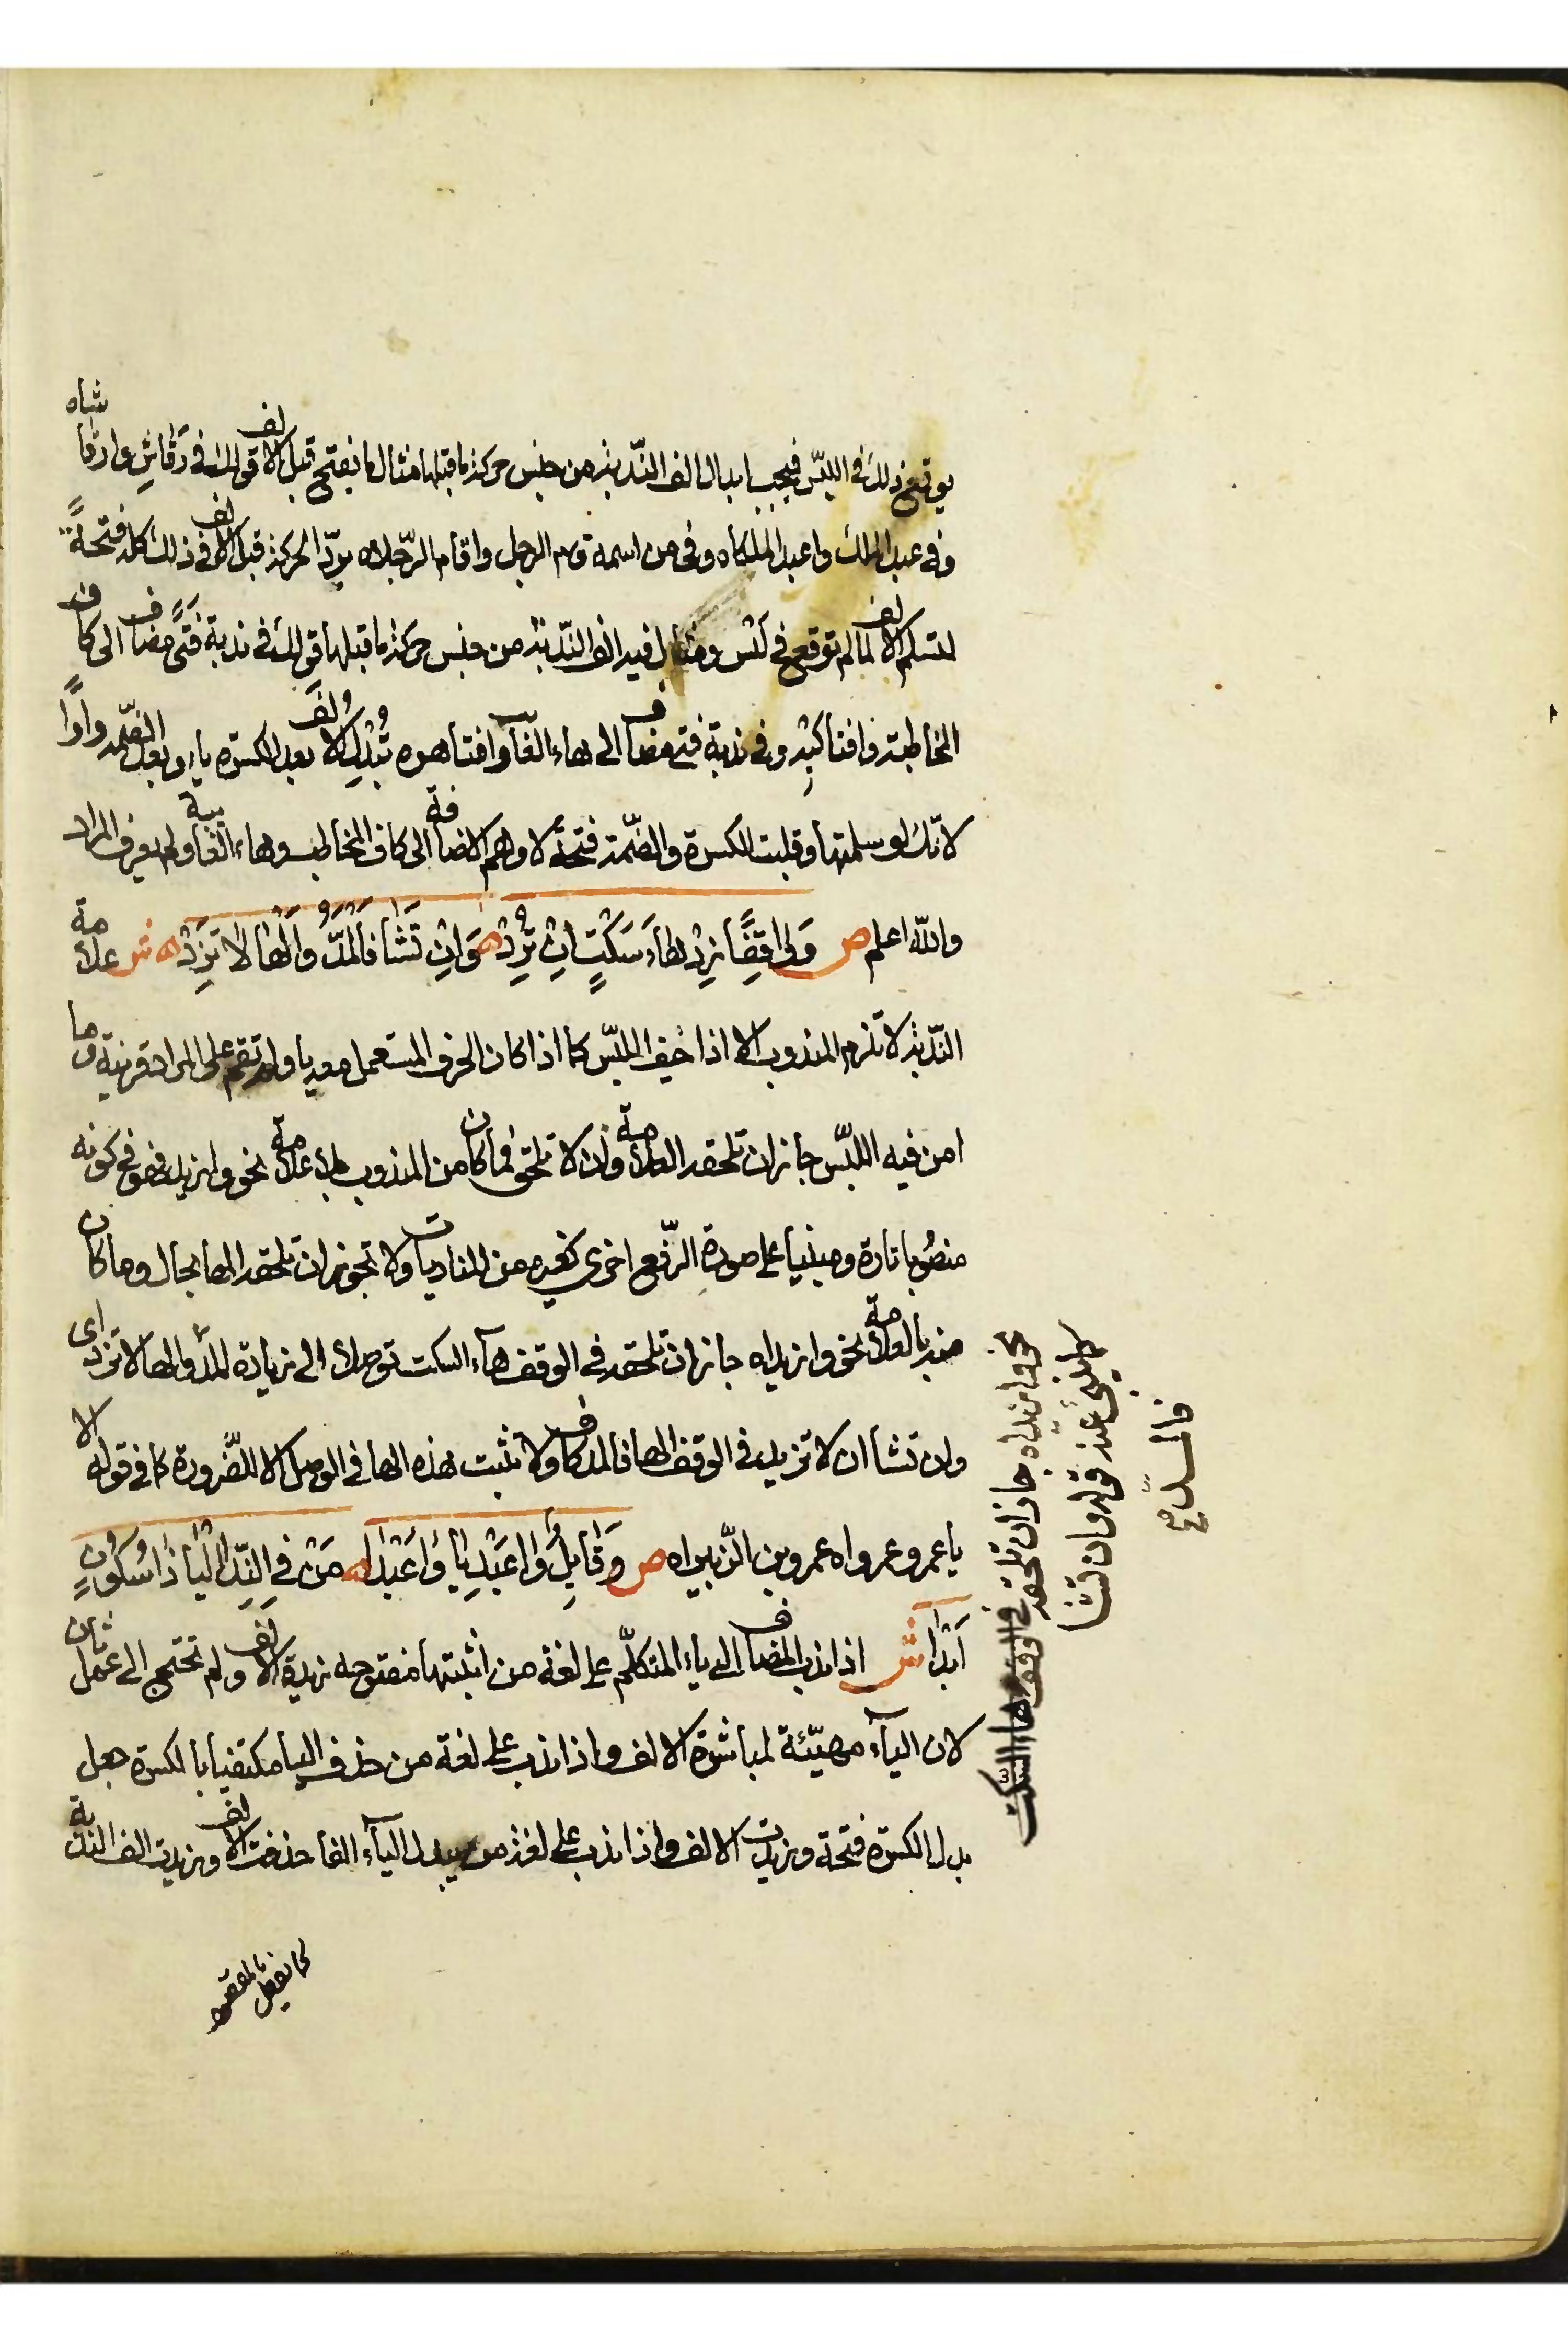 يوقع ذلك في اللبس فيجب ابدال الف الندبة من جنس حركة ما قبلها مثال ما يفتح قبل الالف قولك في رقاش وا رقاشاه
وفي عبد الملك وا عبد الملكاه وفي من اسمه قام الرجل وا قام الرجلاه بردّ الحركة قبل الالف في ذلك كله فتحةً
لتسلم الالف لما لم توقع في لبس ومثال فيه الف الندبة من جنس حركة ما قبلها قولك في ندبة فتًى مضاف الى كاف
المخاطبة وا فتاكيه وفي ندبة فتى مضاف الى هاء الغائب وا فتاهوه تُبْدِل الالفَ بعد الكسرة ياء وبعد الضمّة واوًا
لانّك لو سلمتها وقلبت الكسرة والضّمة فتحةً لاوهم الاضافة الى كاف المخاطب وهاء الغايبة ولم يعرف المراد
والله اعلم ص وَوَاقِفًا زِدْ هَاءَ سَكْتٍ اِنْ تُرِدْ وَاِنْ تَشَا فَالْمَدُّ وَالْهَا لا تَزِدْ ش علامة
النّدبة لا تلزم المندوب الا اذا خيف اللبس كما اذا كان الحرف المستعمل معه يا ولم تقم على المراد قرينة وما
امن فيه اللبس جاز ان تلحقه العلامة وان لا تلحق فما كان من المندوب بلا علامة نحو وا زيد فهو في كونه
منصُوبا تارة ومبنيا على صورة الرّفع اخرى كغيره من المناديات ولا تجوز ان تلحقه الها بحال وما كان
منه بالعلامة نحو وا زيداه جاز ان تلحقه في الوقف هآء السكت توصلا الى زيادة المدّ والها لا تزد اى
وان تشا ان لا تزيد في الوقف الها فالمد كاف ولا تثبت هذه الها في الوصل الا للضّرورة كما في قوله الا
يا عمرو عمرواه عمرو بن الزّبيراه ص وَقَايِلٌ وَا عَبْدِيَا وَا عَبْدَا مَنْ فِي النِّدَا الْيَا ذَا سُكُونٍ
اَبْدَا ش اذا ندب المضاف الى ياء المتكلّم على لغة من اثبتها مفتوحه زيدة الالف ولم تحتج الى عمل ثان
لان اليآء مهيّئة لمباشرة الالف واذا ندب على لغة من حذف اليا مكتفيا بالكسرة جعل
بدل الكسرة فتحة وزيدت الالف واذا ندب على لغة من يبدل اليآء الفا حذفت الالف وزيدت الف الندبة
كما يفعل بالمقصور
نحو وا زيداه جاز ان تلحقه في الوقف هاء السكت
عند قوله وان تشا
فالمدّ